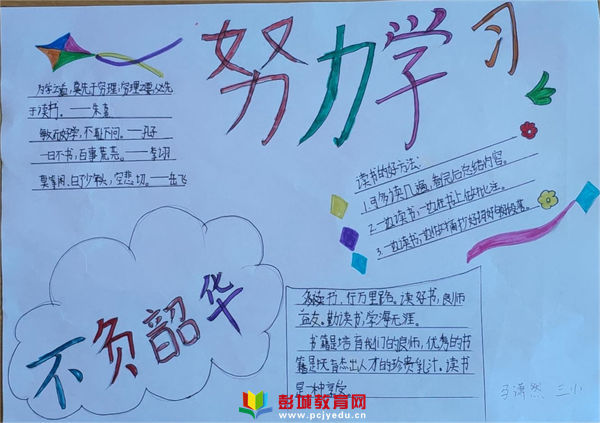 努力学习
为学之道，莫先于穷理；穷理之要，必先
于读书。——朱熹
敏而好学，不耻下问。——孔子
一日不书，百事荒芜。——李诩
莫等闲，白了少年头，空悲切。——岳飞
读书的好方法：
1.可多读几遍，看完后总结内容。
2.一边读书，一边在书上做好批注。
3.一边读书，一边
不负韶华
多读书，行万里路。读好书，良师
益友。勤读书，学海无涯。
书籍是培育我们的良师，优秀的书
籍是抚育杰出人才的珍贵乳汁。读书
是一种享受
王潇然 三小
彭城教育网
www.pcjyedu.cn